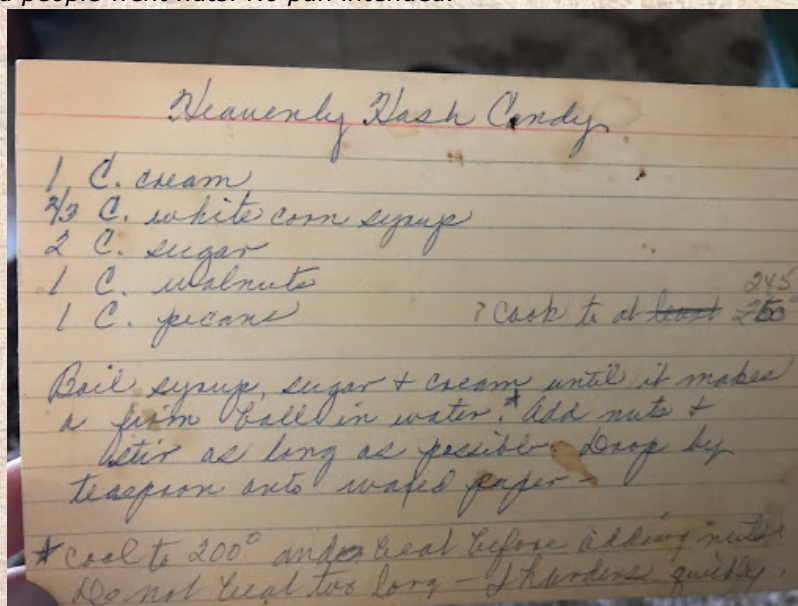 people went nuts. No pun intended.
Heavenly Hash Candy
1 C. cream
2/3 C. white corn syrup
2 C. sugar
1 C. walnuts
1 C. pecans
245
? Cook to at least 250°
Boil syrup, sugar + cream until it makes
a firm ball in water.* Add nuts +
stir as long as possible. Drop by
teaspoon onto waxed paper -
* Cool to 200° and beat before adding nuts.
Do not beat too long - It hardens quickly.